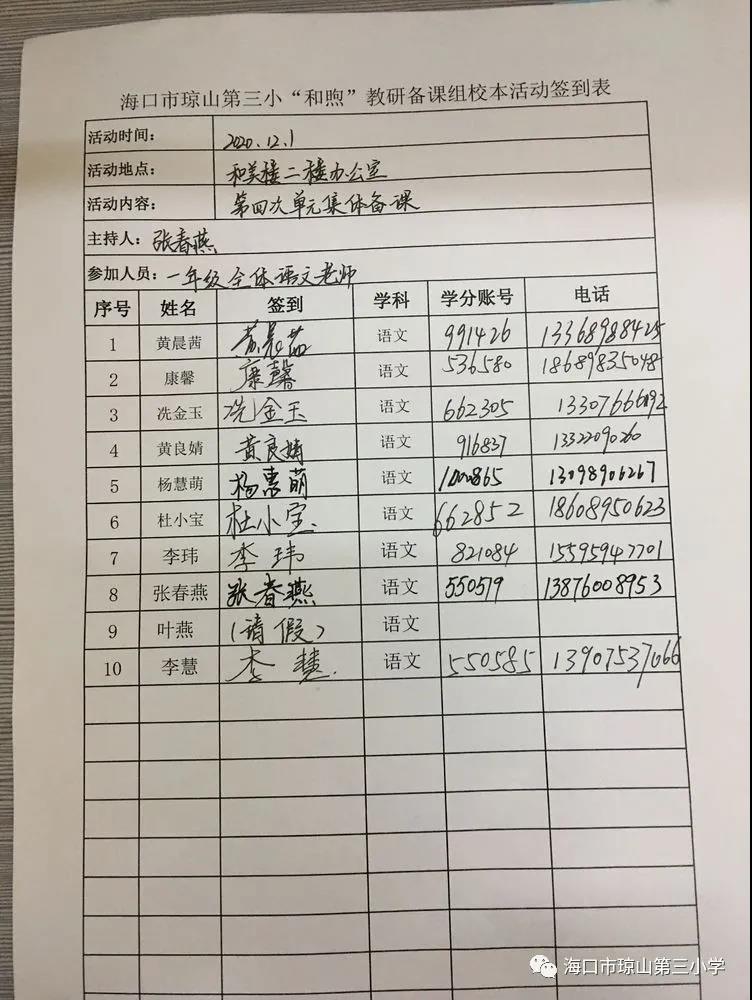 海口市琼山第三小“和煦”教研备课组校本活动签到表
活动时间： 2020.12.1
活动地点： 和美楼二楼办公室
活动内容： 第四次单元集体备课
主持人：张春燕
参加人员：一年级全体语文老师
序号 姓名 签到 学科 学分账号 电话
1 黄晨茜 黄晨茜 语文 991426 13368988425
2 康馨 康馨 语文 536580 18689835048
3 冼金玉 冼金玉 语文 662305 13307666192
4 黄良婧 黄良婧 语文 916837 13322090260
5 杨慧萌 杨惠萌 语文 1000865 13098906267
6 杜小宝 杜小宝 语文 662852 18608950623
7 李玮 李玮 语文 821084 15595947701
8 张春燕 张春燕 语文 550519 13876008953
9 叶燕 （请假） 语文
10 李慧 李慧 语文 550585 13907537066
海口市琼山第三小学